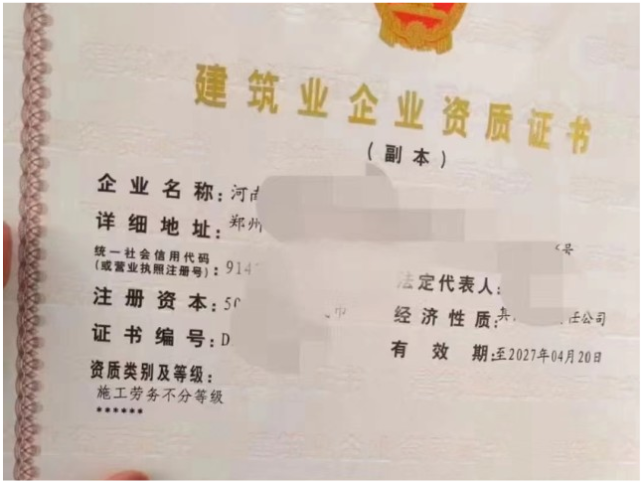 建筑业企业资质证书
(副本)
企业名称:河南
详细地址:郑州 号
统一社会信用代码
(或营业执照注册号):914 法定代表人:
注册资本:50 币 经济性质:其 任公司
证书编号:D 有效期:至2027年04月20日
资质类别及等级:
施工劳务不分等级
******